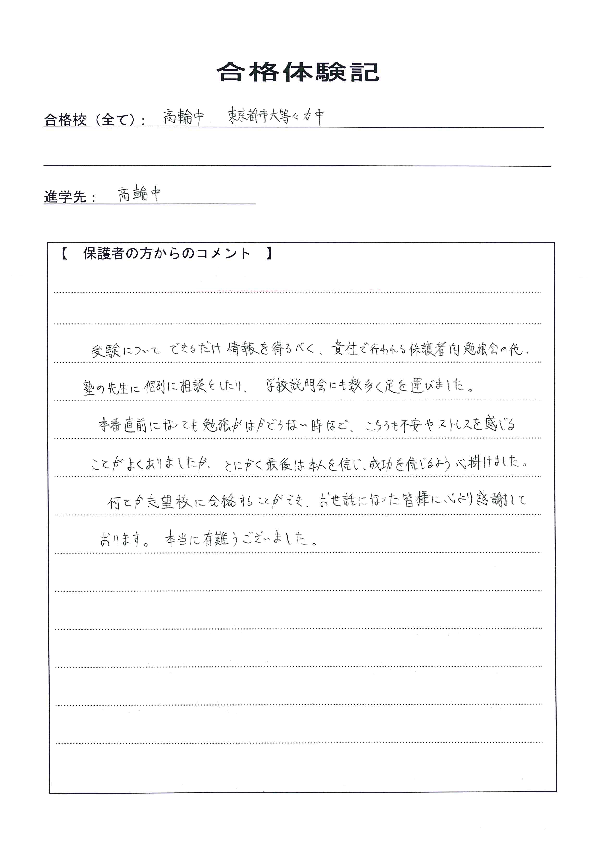 合格体験記
合格校（全て）： 高輪中 東京都市大等々力中
進学先： 高輪中
【 保護者の方からのコメント 】
受験について できるだけ情報を得るべく、貴社で行われる保護者向勉強会の他、
塾の先生に個別に相談をしたり、 学校説明会にも数多く足を運びました。
本番直前になっても勉強がはかどらない時など、こちらも不安やストレスを感じる
ことがよくありましたが、とにかく最後は本人を信じ、成功を信じるよう心掛けました。
何とか志望校に合格することができ、お世話になった皆様に心より感謝して
おります。 本当に有難うございました。